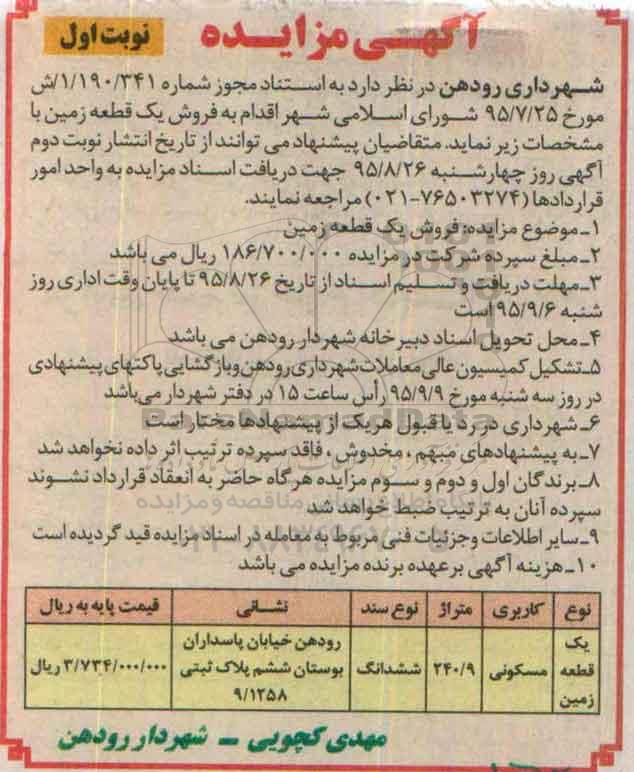 آگهـی مزایـده
نوبت اول
شهرداری رودهن در نظر دارد به استناد مجوز شماره ۱/۱۹۰/۳۴۱/ش
مورخ ۹۵/۷/۲۵ شورای اسلامی شهر اقدام به فروش یک قطعه زمین با
مشخصات زیر نماید. متقاضیان پیشنهاد می توانند از تاریخ انتشار نوبت دوم
آگهی روز چهارشنبه ۹۵/۸/۲۶ جهت دریافت اسناد مزایده به واحد امور
قراردادها (۷۶۵۰۳۲۷۴-۰۲۱) مراجعه نمایند.
۱ـ موضوع مزایده: فروش یک قطعه زمین
۲ـ مبلغ سپرده شرکت در مزایده ۱۸۶/۷۰۰/۰۰۰ ریال می باشد
۳ـ مهلت دریافت و تسلیم اسناد از تاریخ ۹۵/۸/۲۶ تا پایان وقت اداری روز
شنبه ۹۵/۹/۶ است
۴ـ محل تحویل اسناد دبیرخانه شهردار رودهن می باشد
۵ـ تشکیل کمیسیون عالی معاملات شهرداری رودهن و بازگشایی پاکتهای پیشنهادی
در روز سه شنبه مورخ ۹۵/۹/۹ رأس ساعت ۱۵ در دفتر شهردار می‌باشد
۶ـ شهرداری در رد یا قبول هر یک از پیشنهادها مختار است
۷ـ به پیشنهادهای مبهم ، مخدوش ، فاقد سپرده ترتیب اثر داده نخواهد شد
۸ـ برندگان اول و دوم و سوم مزایده هر گاه حاضر به انعقاد قرارداد نشوند
سپرده آنان به ترتیب ضبط خواهد شد
۹ـ سایر اطلاعات و جزئیات فنی مربوط به معامله در اسناد مزایده قید گردیده است
۱۰ـ هزینه آگهی بر عهده برنده مزایده می باشد
نوع کاربری متراژ نوع سند نشـانی قیمت پایه به ریال
یک قطعه زمین مسکونی ۲۴۰/۹ ششدانگ رودهن خیابان پاسداران بوستان ششم پلاک ثبتی ۹/۱۲۵۸ ۳/۷۳۴/۰۰۰/۰۰۰ ریال
مهدی کچویی ــ شهردار رودهن
ParsNamadData